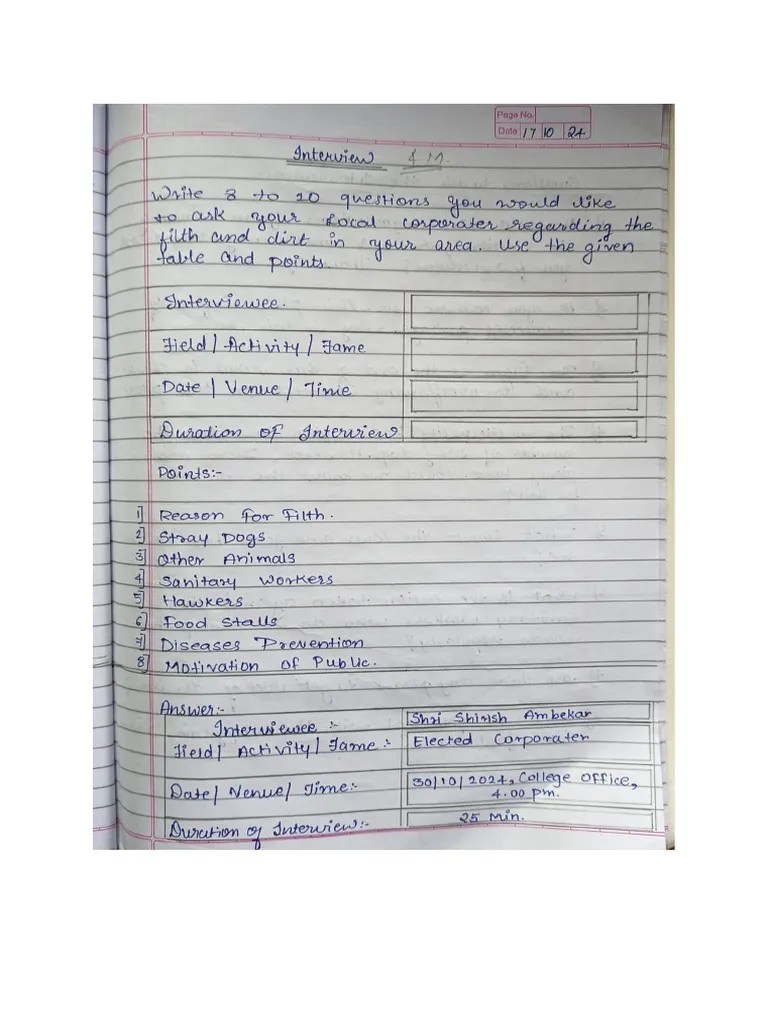 Page No.
Date 17 10 24
Interview 4 M.
Write 8 to 10 questions you would like
to ask your local corporater regarding the
filth and dirt in your area. Use the given
table and points.
Interviewee.
Field / Activity / Fame
Date / Venue / Time
Duration of Interview
Points:-
1] Reason For Filth.
2] Stray Dogs
3] Other Animals
4] Sanitary Workers
5] Hawkers.
6] Food Stalls
7] Diseases Prevention
8] Motivation of Public.
Answer:-
Interviewee :- Shri Shirish Ambekar
Field / Activity / Fame :- Elected Corporater
Date / Venue / Time:- 30/10/2024, College Office,
4.00 pm.
Duration of Interview:- 25 Min.